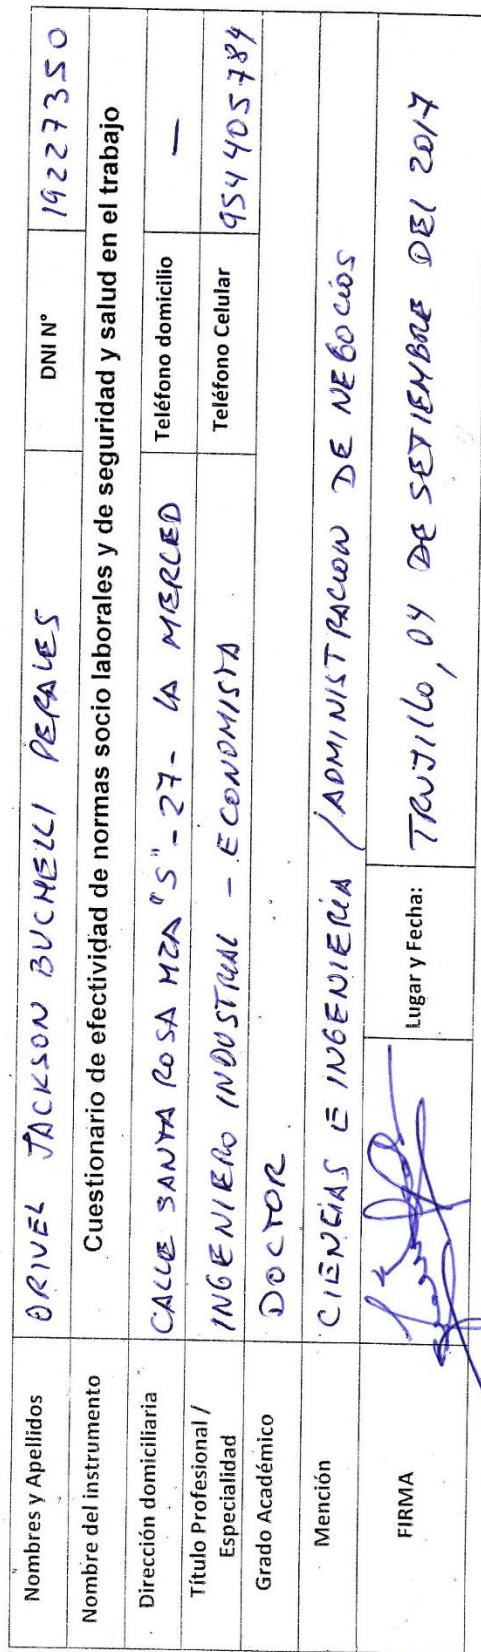 Nombres y Apellidos ORIVEL JACKSON BUCHELLI PERALES DNI N° 19227350
Nombre del instrumento Cuestionario de efectividad de normas socio laborales y de seguridad y salud en el trabajo
Dirección domiciliaria CALLE SANTA ROSA MZA "S" - 27 - LA MERCED Teléfono domicilio —
Título Profesional /
Especialidad INGENIERO INDUSTRIAL - ECONOMISTA Teléfono Celular 954405784
Grado Académico DOCTOR
Mención CIENCIAS E INGENIERIA / ADMINISTRACION DE NEGOCIOS
FIRMA Lugar y Fecha: TRUJILLO, 04 DE SETIEMBRE DEL 2017